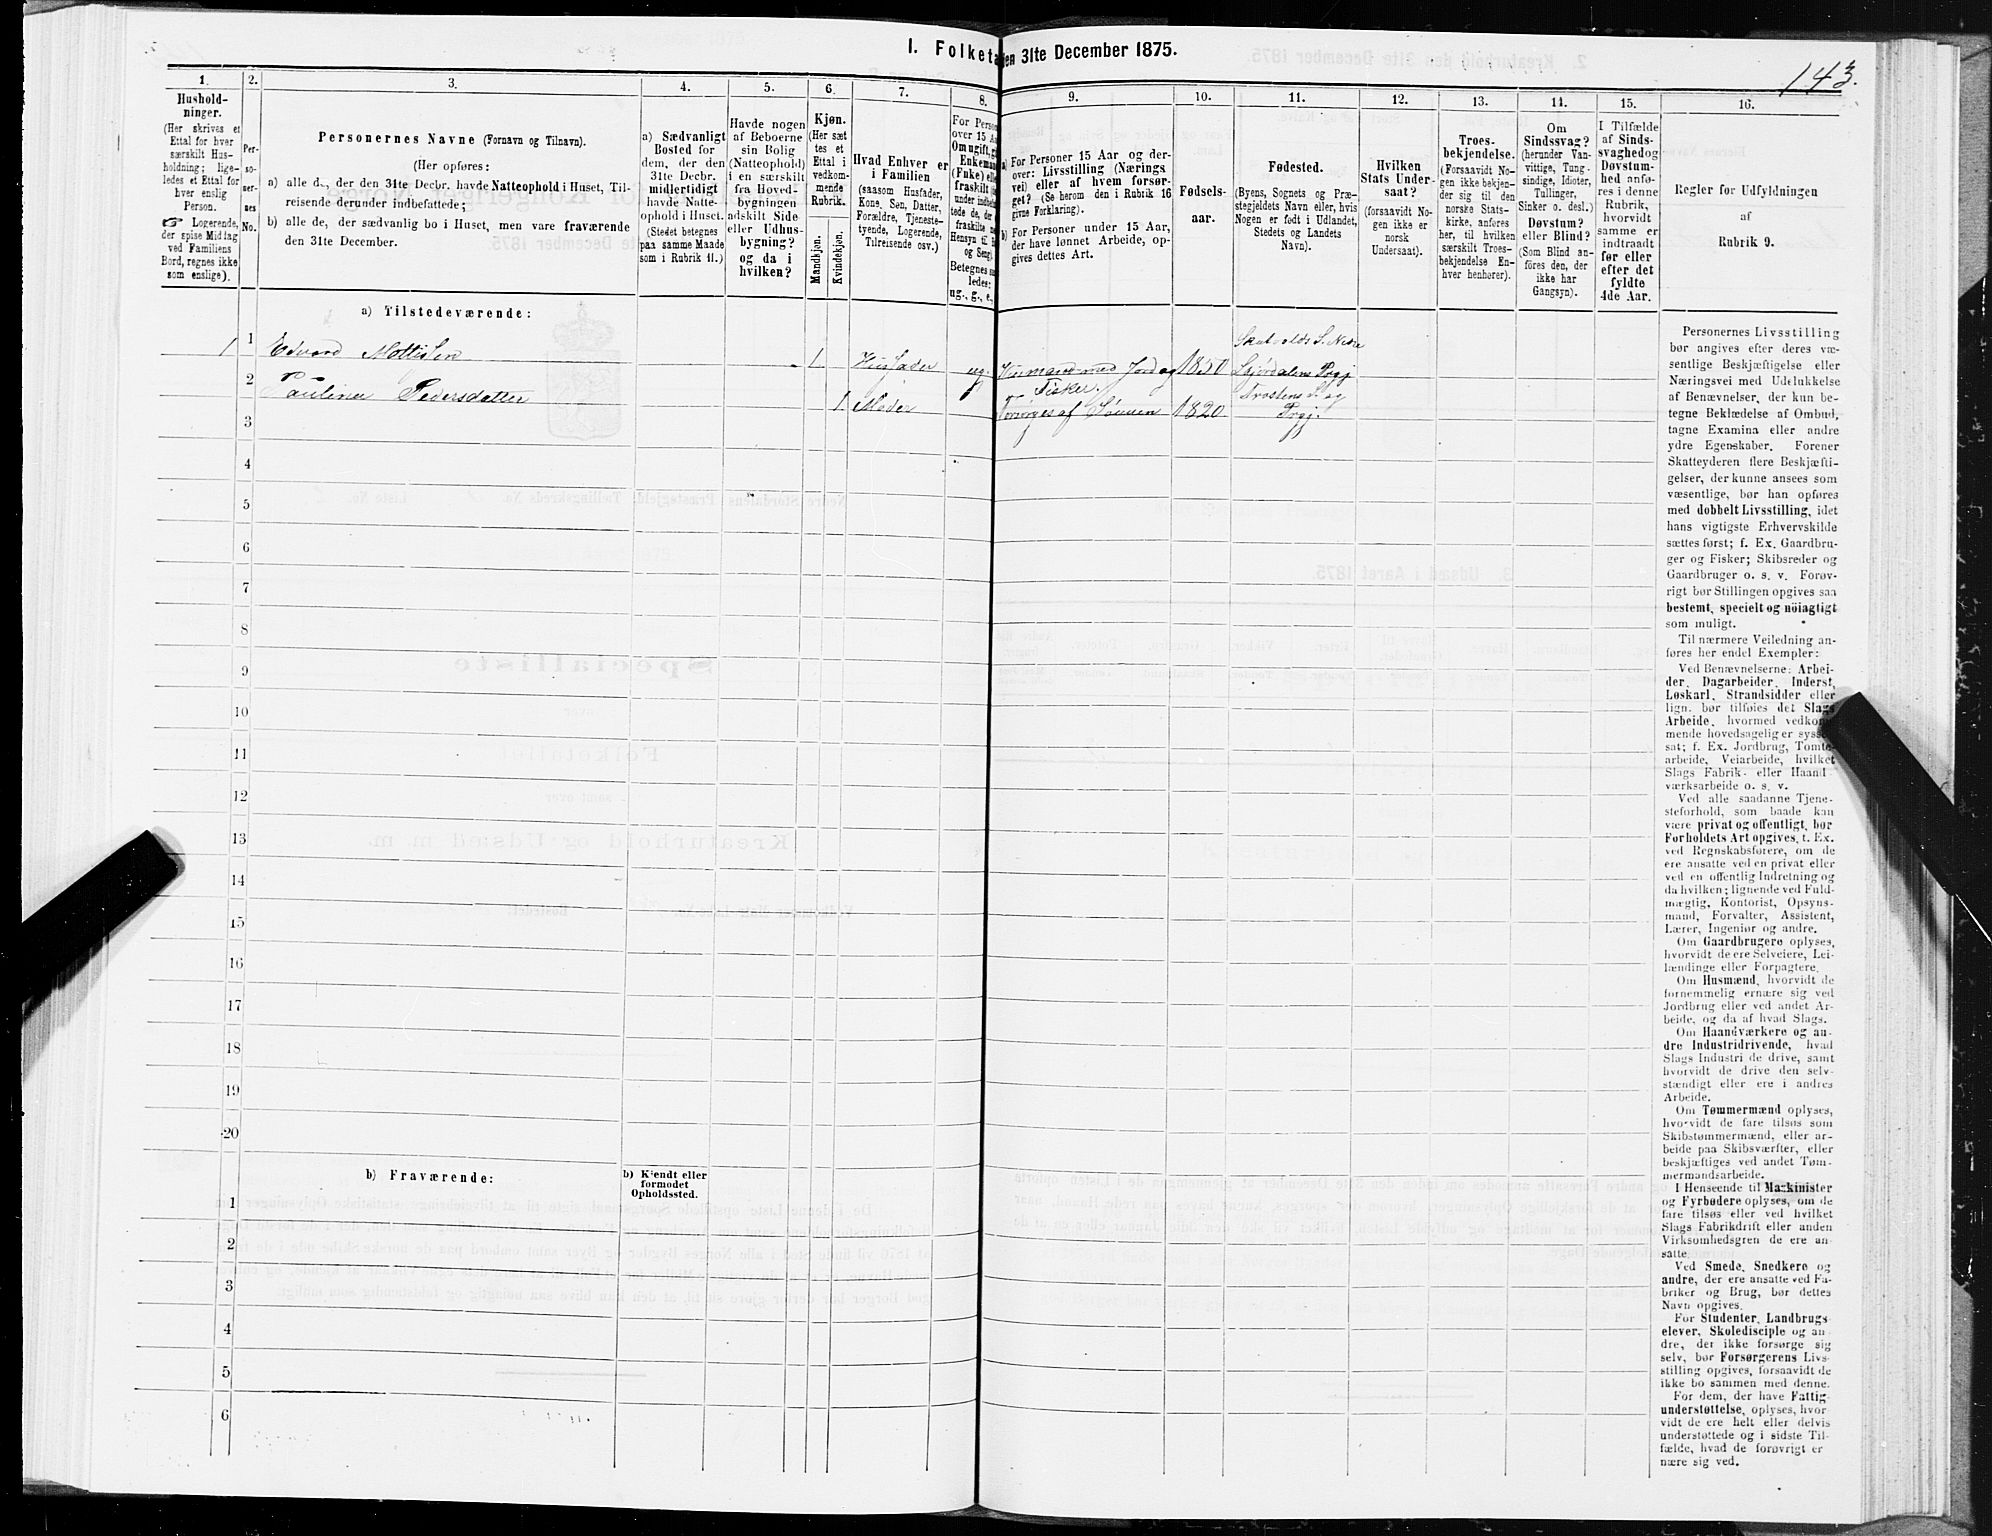 I. Folketa
den 31te December 1875.
143.
1.
2.
3.
4.
5.
6.
7.
8.
9.
10.
11.
12.
13.
14.
15.
16.
Hushold-
ninger.
(Her skrives et
Ettal for hver
særskilt Hus-
holdning; lige-
ledes et Ettal for
hver enslig
Person.
☞ Logerende,
der spise Middag
ved Familiens
Bord, regnes ikke
som enslige).
Per-
so-
ner-
nes
No.
Personernes Navne (Fornavn og Tilnavn).
(Her opføres:
a) alle de, der den 31te Decbr. havde Natteophold i Huset, Til-
reisende derunder indbefattede;
b) alle de, der sædvanlig bo i Huset, men vare fraværende
den 31te December.
a) Sædvanligt
Bosted for
dem, der den
31te Decbr.
midlertidigt
havde Natte-
ophold i Huset.
(Stedet betegnes
paa samme Maade
som i Rubrik 11.)
Havde nogen
af Beboerne
sin Bolig
(Natteophold)
i en særskilt
fra Hoved-
bygningen
adskilt Side
eller Udhus-
bygning?
og da i
hvilken?
Kjøn.
(Her sæt
tes et
Ettal i
vedkom-
mende
Rubrik.
Mandkjøn.
Kvindekjøn.
Hvad Enhver er
i Familien
(saasom Husfader,
Kone, Søn, Datter,
Forældre, Tjeneste-
tyende, Logerende,
Tilreisende osv.)
For Person
over 15 Aa
Om ugift, g
Enkeman
(Enke) elle
fraskilt
under indbe
tede de, der
fraskilte
Hensyn til B
og Seng)
Betegnes sa
ledes:
ug., g., e.,
a) For Personer 15 Aar og der-
over: Livsstilling (Nærings
vei) eller af hvem forsør-
get? (Se herom den i Rubrik 16
givne Forklaring).
b) For Personer under 15 Aar,
der have lønnet Arbeide, op-
gives dettes Art.
Fødsels-
aar.
Fødested.
(Byens, Sognets og Præ-
stegjeldets Navn eller, hvis
Nogen er født i Udlandet,
Stedets og Landets
Navn).
Hvilken
Stats Under-
saat?
(forsaavidt No-
gen ikke er
norsk
Undersaat).
Troes-
bekjendelse.
(Forsaavidt No-
gen ikke bekjen-
der sig til den
norske Stats-
kirke, anføres
her, til hvilken
særskilt Troes-
bekjendelse En-
hver henhører).
Om
Sindssvag?
(herunder Van-
vittige, Tung-
sindige, Idioter,
Tullinger,
Sinker o. desl.)
Døvstum?
eller Blind?
(Som Blind an-
føres den, der
ikke har
Gangsyn).
I Tilfælde
af Sinds-
svaghedog
Døvstum-
hed anfø-
res i denne
Rubrik,
hvorvidt
samme er
indtraadt
før eller
efter det
fyldte
4de Aar.
Regler for Udfyldningen
af
Rubrik 9.
a) Tilstedeværende:
1 1 Edvard Mottisen 1 Husfader ug. Husmand med Jord og Fisker. 1850 Skatvolds S. Nedre Stjørdalens Prgj
2 Pauline Pedersdatter 1 Moder Forsørges af Sønnen 1820 Frostens S. og Prgj.
3
4
5
6
7
8
9
10
11
12
13
14
15
16
17
18
19
20
b) Fraværende:
b) Kjendt eller
formodet
Opholdssted.
1
2
3
4
5
6
Personernes Livsstilling
bør angives efter deres væ-
sentlige Beskjæftigelse eller
Næringsvei med Udelukkelse
af Benævnelser, der kun be-
tegne Beklædelse af Ombud,
tagne Examina eller andre
ydre Egenskaber. Forener
Skatteyderen flere Beskjæfti-
gelser, der kunne ansees som
væsentlige, bør han opføres
med dobbelt Livsstilling, idet
hans vigtigste Erhvervskilde
sættes først; f. Ex. Gaardbru-
ger og Fisker; Skibsreder og
Gaardbruger o. s. v. Forøv-
rigt bør Stillingen opgives saa
bestemt, specielt og nöiagtigt
som muligt.
Til nærmere Veiledning an-
føres her endel Exempler:
Ved Benævnelserne: Arbei-
der, Dagarbeider, Inderst,
Løskarl, Strandsidder eller
lign. bør tilføies det Slags
Arbeide, hvormed vedkom-
mende hovedsagelig er syssel-
sat; f. Ex. Jordbrug, Tomte-
arbeide, Veiarbeide, hvilket
Slags Fabrik- eller Haand
værksarbeide o. s. v.
Ved alle saadanne Tjene-
steforhold, som baade kan
være privat og offentligt, bør
Forholdets Art opgives, t. Ex.
ved Regnskabsførere, om de
ere ansatte ved en privat eller
ved en offentlig Indretning og
da hvilken; lignende ved Fuld-
mægtig, Kontorist, Opsyns-
mand, Forvalter, Assistent,
Lærer, Ingeniør og andre.
Om Gaardbrugere oplyses,
hvorvidt de ere Selveiere, Lei-
lændinge eller Forpagtere.
Om Husmænd, hvorvidt de
fornemmelig ernære sig ved
Jordbrug eller ved andet Ar-
beide, og da af hvad Slags.
Om Haandværkere og an-
dre Industridrivende, hvad
Slags Industri de drive, samt
hvorvidt de drive den selv-
stændigt eller ere i andres
Arbeide.
Om Tømmermænd oplyses,
hvorvidt de fare tilsøs som
Skibstømmermænd, eller ar-
beide paa Skibsværfter, eller
beskjæftiges ved andet Tøm-
mermandsarbeide.
I Henseende til Maskinister
og Fyrbødere oplyses, om de
fare tilsøs eller ved hvilket
Slags Fabrikdrift eller anden
Virksomhedsgren de ere an-
satte.
Ved Smede, Snedkere og
andre, der ere ansatte ved Fa-
briker og Brug, bør dettes
Navn opgives.
For Studenter, Landbrugs-
elever, Skoledisciple og an-
dre, der ikke forsørge sig
selv, bør Forsørgerens Livs-
stilling opgives, forsaavidt de
ikke bo sammen med denne.
For dem, der have Fattig-
understøttelse, oplyses, hvor-
vidt de ere helt eller delvis
understøttede og i sidste Til-
fælde, hvad de forøvrigt er
nære sig ved.